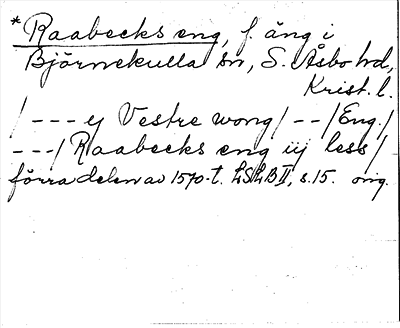 * Raabecks eng, f. äng i
Björnekulla sn, S. Åsbo hd,
Krist. l.
/ --- y Vestre wong / -- / Eng. /
--- / Raabecks eng iij less /
förra delen av 1570-t. LSLB II, s. 15. orig.